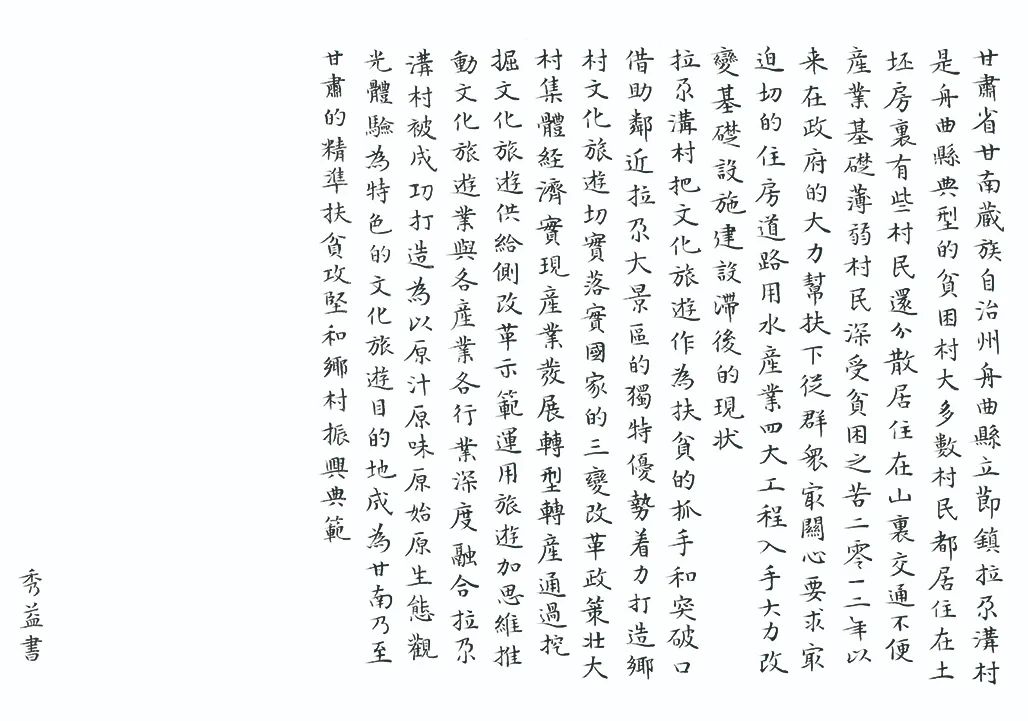 甘肅省甘南藏族自治州舟曲縣立節鎮拉尕溝村
是舟曲縣典型的貧困村大多數村民都居住在土
坯房裏有些村民還分散居住在山裏交通不便
産業基礎薄弱村民深受貧困之苦二零一二年以
来在政府的大力幫扶下從群衆㝡關心要求㝡
迫切的住房道路用水産業四大工程入手大力改
變基礎設施建設滯後的現状
拉尕溝村把文化旅遊作為扶貧的抓手和突破口
借助鄰近拉尕大景區的獨特優勢着力打造鄉
村文化旅遊切實落實國家的三變改革政策壯大
村集體経濟實現産業發展轉型轉産通過挖
掘文化旅遊供給側改革示範運用旅遊加思維推
動文化旅遊業與各産業各行業深度融合拉尕
溝村被成功打造為以原汁原味原始原生態觀
光體驗為特色的文化旅遊目的地成為甘南乃至
甘肅的精準扶貧攻堅和鄉村振興典範
秀益書